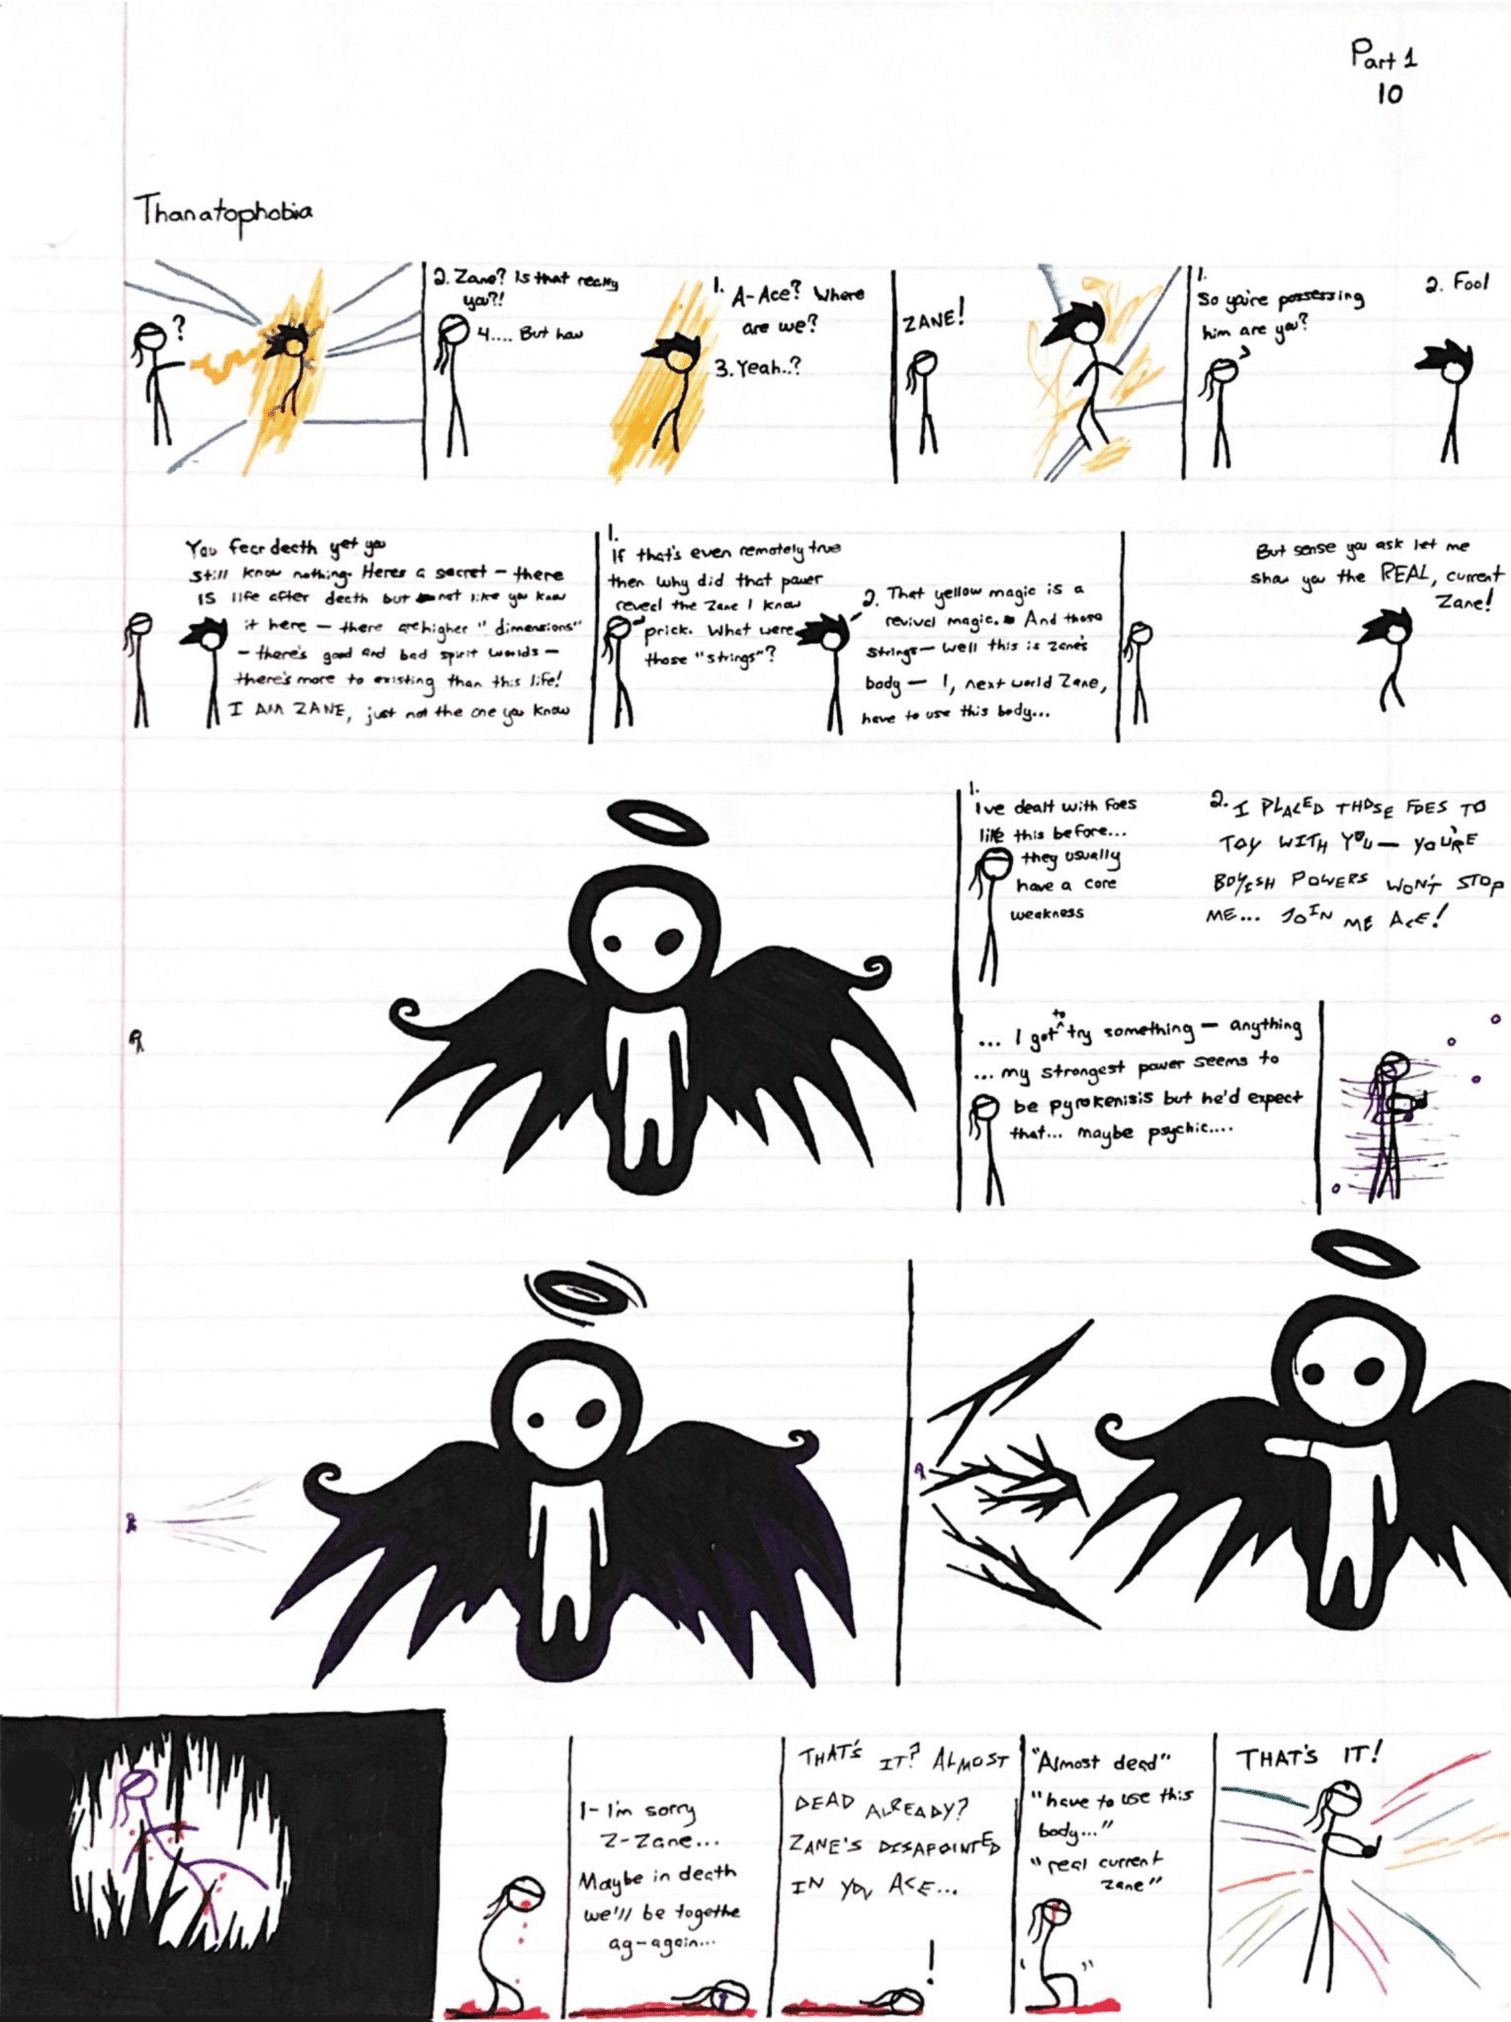 Part 1
10
Thanatophobia
?
2. Zane? Is that really
you?!
4.... But how
1. A-Ace? Where
are we?
3. Yeah..?
ZANE!
1.
So you're possessing
him are you?
2. Fool
You fear death yet you
still know nothing. Heres a secret — there
IS life after death but not like you know
it here — there are higher "dimensions"
— there's good and bad spirit worlds —
there's more to existing than this life!
I AM ZANE, just not the one you know
1.
If that's even remotely true
then why did that power
reveal the Zane I know
prick. What were
those "strings"?
2. That yellow magic is a
revival magic. And those
strings — well this is Zane's
body — I, next world Zane,
have to use this body...
But sense you ask let me
show you the REAL, current
Zane!
1.
I've dealt with foes
like this before...
they usually
have a core
weakness
2. I PLACED THOSE FOES TO
TOY WITH YOU — YOU'RE
BOYISH POWERS WON'T STOP
ME... JOIN ME ACE!
... I got to try something — anything
... my strongest power seems to
be pyrokenisis but he'd expect
that... maybe psychic....
I-I'm sorry
Z-Zane...
Maybe in death
we'll be togethe
ag-again...
THAT'S IT? ALMOST
DEAD ALREADY?
ZANE'S DISAPOINTED
IN YOU ACE...
!
"Almost dead"
"have to use this
body..."
"real current
Zane"
THAT'S IT!